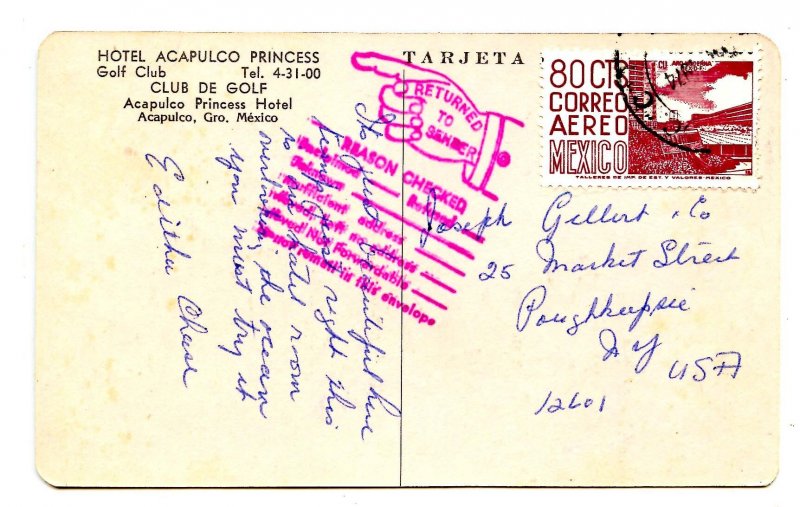 HOTEL ACAPULCO PRINCESS
Golf Club Tel. 4-31-00
CLUB DE GOLF
Acapulco Princess Hotel
Acapulco, Gro. México
TARJETA
80 CTS
CORREO
AEREO
MEXICO
CU ARQ MODERNA
TALLERES DE IMP. DE EST. Y VALORES-MEXICO
RETURNED
TO
SENDER
REASON CHECKED
Unclaimed
Refused
Unknown
Insufficient address
Moved, Left no address
Moved Not Forwardable
Do not remail in this envelope
Its just beautiful here
right this
is our hotel room
overlooking the ocean
you must try it
Editha Chase
Joseph Gellert + Co
25 Market Street
Poughkeepsie
NY
USA
12601